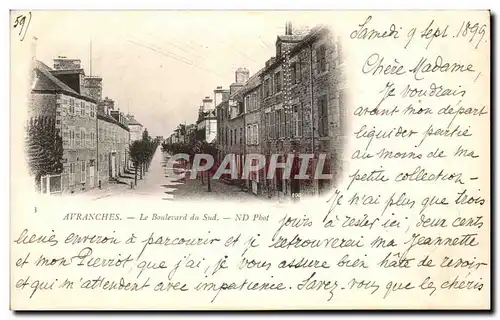 59)
Samedi 9 Sept. 1899
Chère Madame,
Je voudrais
avant mon départ
liquider partie
au moins de ma
petite collection -
Je n'ai plus que trois
CARTE PHIL
AVRANCHES. — Le Boulevard du Sud. — ND Phot
jours à rester ici, deux cents
lieues environ à parcourir et je retrouverai ma Jeannette
et mon Pierrot que j'ai, je vous assure bien hâte de revoir
et qui m'attendent avec impatience. Savez-vous que les chéris